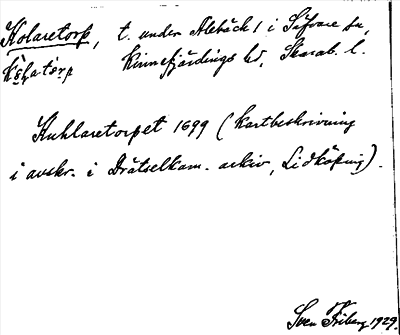 Kolaretorp, t. under Alebäck 1 i Säfvare sn,
Kinnefjärdings hd, Skarab. l.
Kuhlaretorpet 1699 (Kartbeskrivning
i avskr. i Drätselkam. arkiv, Lidköping).
Sven Friberg 1929.